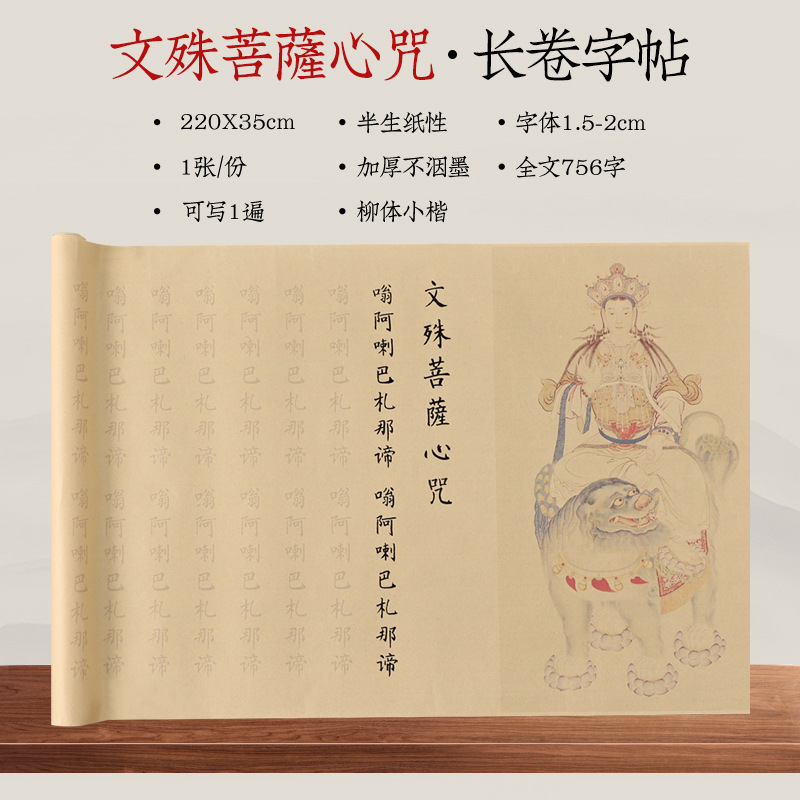 文殊菩薩心咒·长卷字帖
• 220X35cm • 半生纸性 • 字体1.5-2cm
• 1张/份 • 加厚不洇墨 • 全文756字
• 可写1遍 • 柳体小楷
文殊菩薩心咒
嗡阿喇巴札那谛 嗡阿喇巴札那谛
嗡阿喇巴札那谛 嗡阿喇巴札那谛
嗡阿喇巴札那谛 嗡阿喇巴札那谛
嗡阿喇巴札那谛 嗡阿喇巴札那谛
嗡阿喇巴札那谛 嗡阿喇巴札那谛
嗡阿喇巴札那谛 嗡阿喇巴札那谛
嗡阿喇巴札那谛 嗡阿喇巴札那谛
嗡阿喇巴札那谛 嗡阿喇巴札那谛